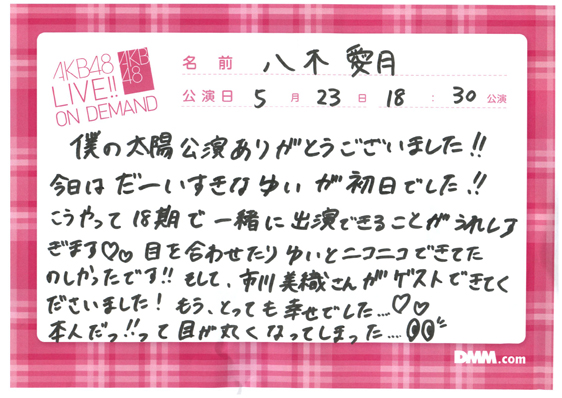 AKB48
LIVE!!
ON DEMAND
AKB
48
名前 八木愛月
公演日 5月23日18:30公演
僕の太陽公演ありがとうございました!!
今日はだーいすきなゆいが初日でした!!
こうやって18期で一緒に出演できることがうれしす
ぎます♡♡ 目を合わせたりゆいとニコニコできてた
のしかったです!! そして、市川美織さんがゲストできてく
ださいました! もう、とっても幸せでした...♡♡
本人だっ!!って目が丸くなってしまった....👀
DMM.com